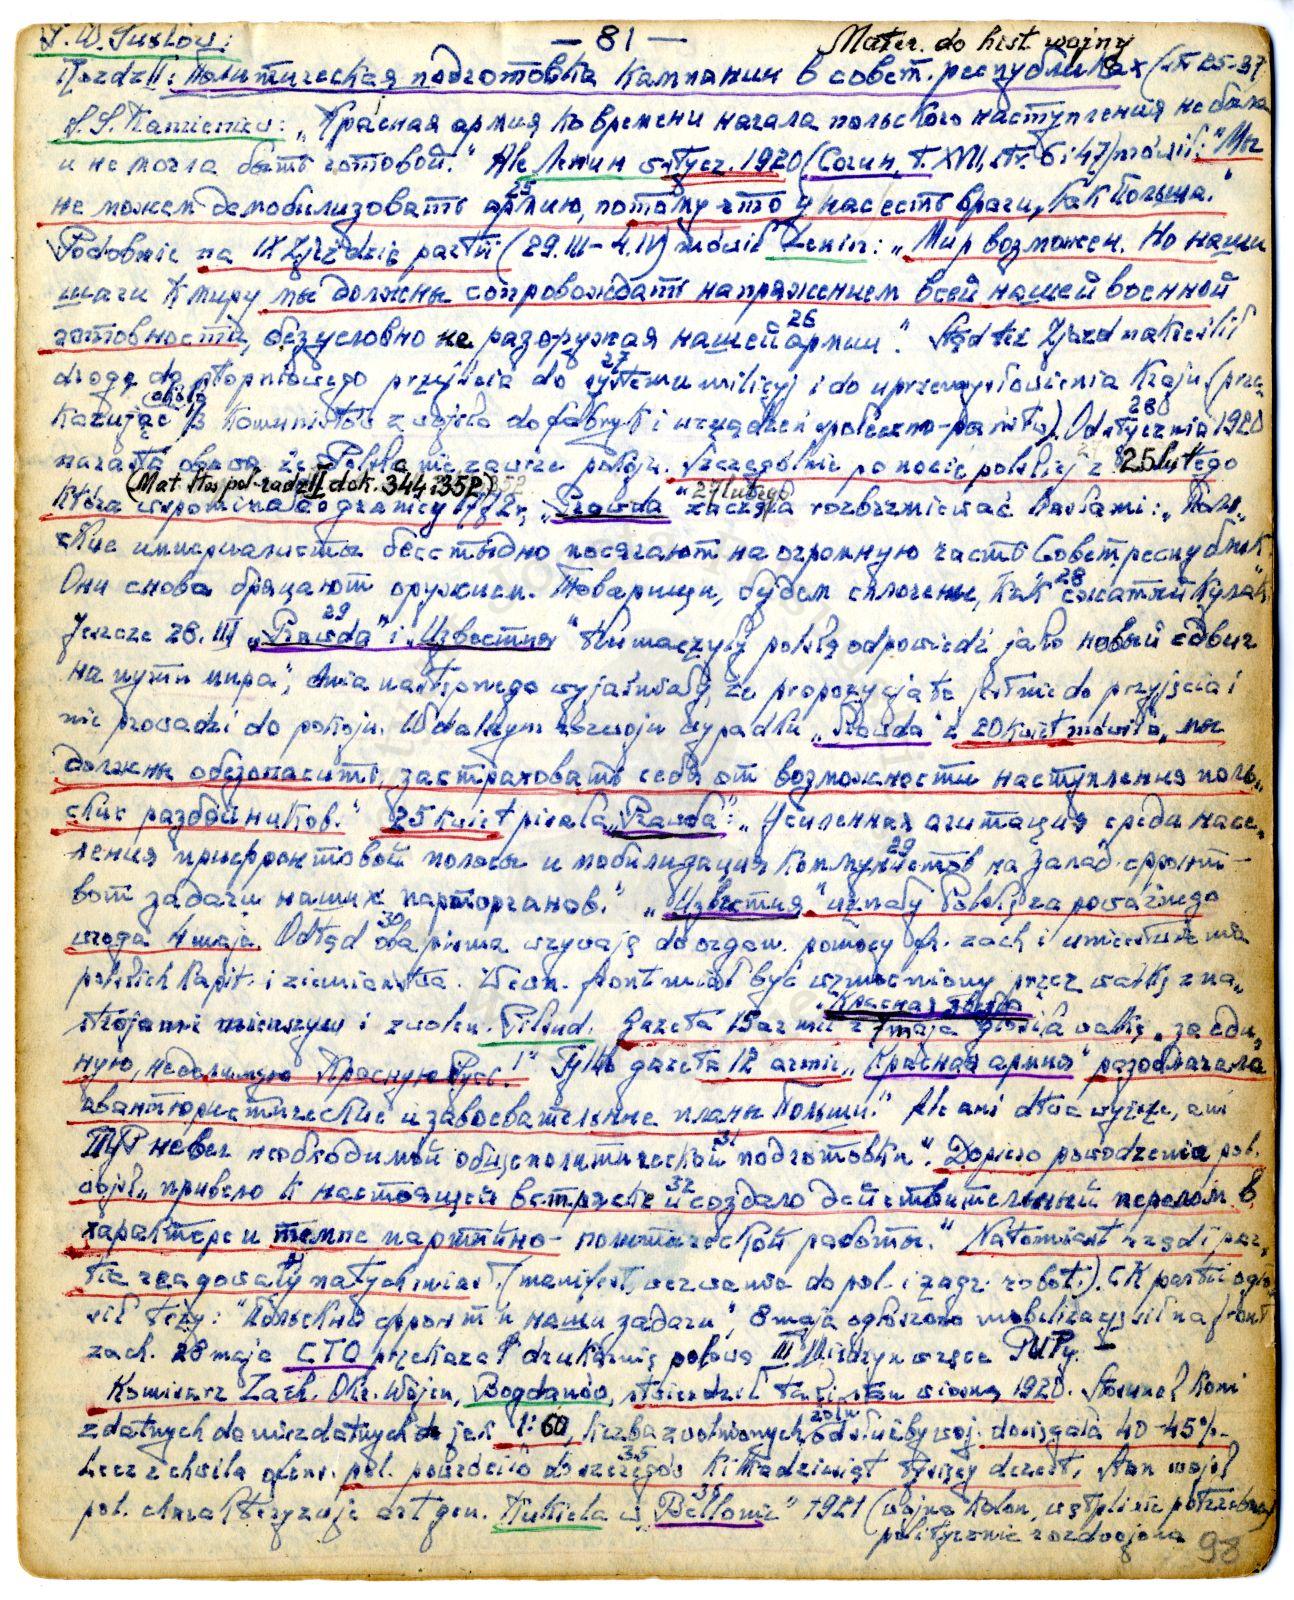 I. W. Susłow:
— 81 —
Mater. do hist. wojny
Rozdz II: Политическая подготовка кампании в совет. республиках (str 25-37
S. S. Kamieniew: „Красная армия ко времени начала польского наступления не была
и не могла быть готовой." Ale Ленин w stycz. 1920 (Сочин, т. XVII, str. 6 i 47) mówił: "Мы
не можем демобилизовать армию, потому что у нас есть враги, как Польша."
25
Podobnie na IX Zjeździe partii (29.III – 4.IV) mówił Lenin: „Мир возможен. Но наши
шаги к миру мы должны сопровождать напряжением всей нашей военной
готовности, безусловно не разоружая нашей армии". Stąd też Zjazd nakreślił
26
drogę do stopniowego przejścia do systemu milicyj i do uprzemysłowienia kraju (prze
27
kazując około 1/3 komunistów z wojska do fabryk i urządzeń społeczno-państw). Od stycznia 1920
28
narasta obawa że Polska nie zawrze pokoju. Szczególnie po nocie polskiej z 25 lutego
(Mat. Stos pol-radz II dok. 344 i 352)
która wspomina o granicy 1772 r, „Prawda" 27 lutego zaczęła rozbrzmiewać hasłami: „Поль„
ские империалисты бесстыдно посягают на огромную часть Совет. республик
Они снова бряцают оружием. Товарищи, будем сплочены, как сжатый кулак
28
Jeszcze 26. III „Prawda" i „Известия" tłumaczyły polską odpowiedź jako новый сдвиг
29
на пути мира", dnia następnego wyjaśniały, że propozycja ta jest nie do przyjęcia i
nie prowadzi do pokoju. W dalszym rozwoju wypadków „Prawda" z 20 kwiet mówiła „мы
должны обезопасить, застраховать себя от возможности наступления поль„
ских разбойников." 25 kwiet pisała „Prawda": „Усиленная агитация среди насе„
ления прифронтовой полосы и мобилизация коммунистов на Запад. фронт –
29
вот задачи наших парторганов." „Известия" uznały Polskę za poważnego
wroga 4 maja. Odtąd oba pisma wzywają do organ. pomocy fr. zach i
30
polskich kapit. i ziemiaństwa. Wewn. front miał być wzmocniony przez walkę z na„
strojami mienszew i zwolen. Piłsud. Gazeta 15 armii „Красная звезда" z 7 maja głosiła walkę „за еди„
ную, неделимую Красную Русь!" Tylko gazeta 12 armii „Красная армия" разоблачала
авантюристические и завоевательные планы Польши." Ale ani dwie wyższe, ani
ПУР не вел необходимой общеполитической подготовки". Dopiero powodzenia pol.
31
wojsk „привело к настоящей встряске и создало действительный перелом в
32
характере и темпе партийно-политической работы." Natomiast rząd i par„
tia reagowały natychmiast (manifest, wezwania do pol. i zagr. robot.). CK partii ogło
sił tezy: "Польский фронт и наши задачи", 8 maja ogłoszono mobilizację sił na front
zach. 28 maja СТО przekazał drukarnię polową III Międzynar
Komisarz Zach. Okr. Wojen, Bogdanów, stwierdził taki stan wiosną 1920. Stosunek koni
zdatnych do niezdatnych jak 1:60, liczba zwolnionych żołn. od służby woj. dosięgała 40–45%
Lecz z chwilą ofens. pol. powróciło do szeregów kilkadziesiąt tysięcy dezert. Stan wojsk
35
pol. charakteryzuje art gen. Kukiela w „Bellonie" 1921 (wojna
36
politycznie rozdwojona
98